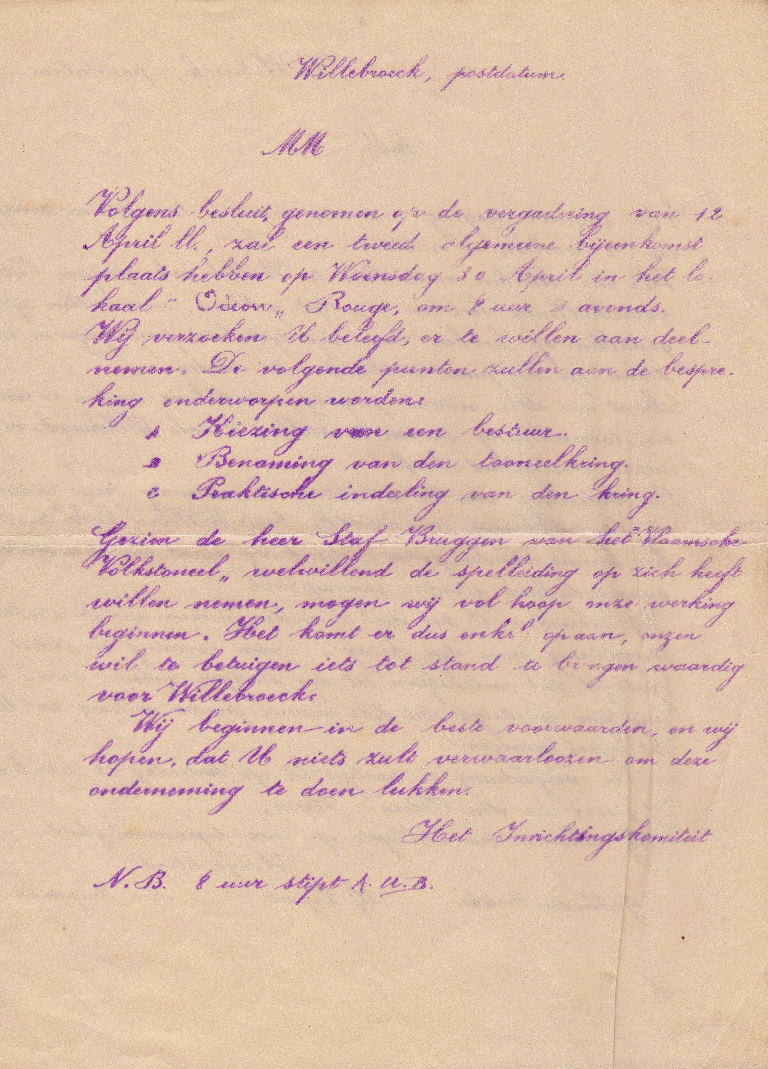 Willebroeck, postdatum.
MM
Volgens besluit, genomen op de vergadering van 12
April ll., zal een tweed algemeene bijeenkomst
plaats hebben op Woensdag 30 April in het lo-
kaal " Rouge, om 8 uur s avonds.
Wij verzoeken U beleefd, er te willen aan deel-
nemen. De volgende punten zullen aan de bespre-
king onderworpen worden:
A Kiezing van een bestuur.
B Benaming van den tooneelkring.
C Praktische indeeling van den kring.
Gezien de heer Staf Bruggen van het "Vlaamsche
Volkstoneel„ welwillend de spelleiding op zich heeft
willen nemen, mogen wij vol hoop onze werking
beginnen. Het komt er dus enkel op aan, onzen
wil te betuigen iets tot stand te brengen waardig
voor Willebroeck.
Wij beginnen in de beste voorwaarden, en wij
hopen, dat U niets zult verwaarloozen om deze
onderneming te doen lukken.
Het Inrichtingskomiteit
N.B. 8 uur stipt A.U.B.